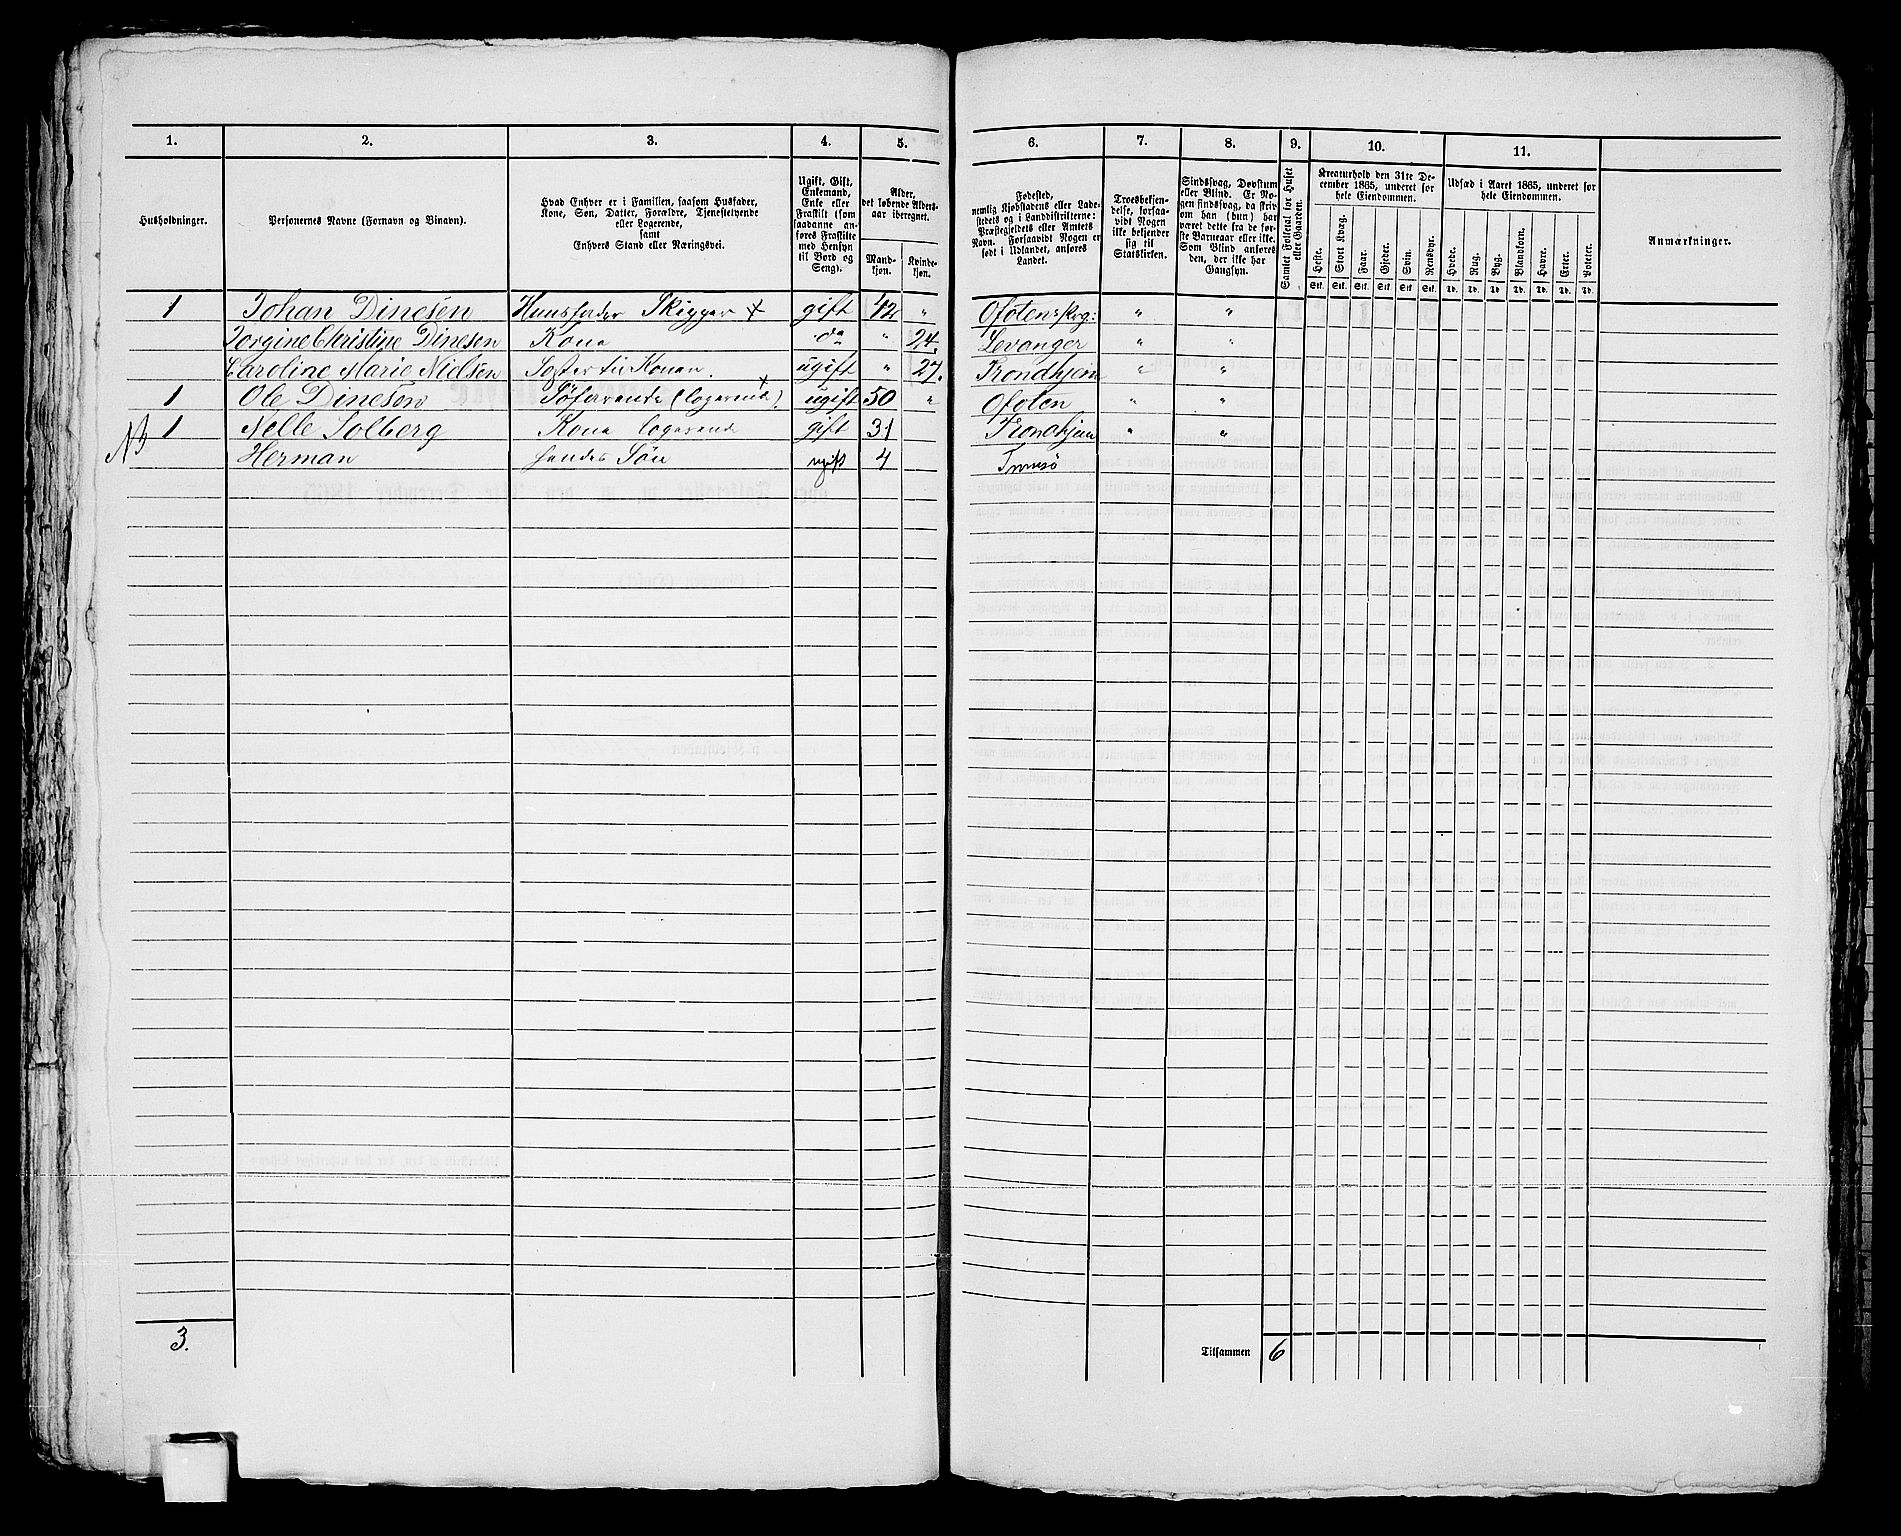 1. 2. 3. 4. 5. 6. 7. 8. 9. 10. 11.
Husholdninger.
Personernes Navne (Fornavn og Binavn).
Hvad Enhver er i Familien, saasom Husfader,
Kone, Søn, Datter, Forældre, Tjenestetyende
eller Logerende,
samt
Enhvers Stand eller Næringsvei.
Ugift, Gift,
Enkemand,
Enke eller
Fraskilt (som
saadanne an-
føres Fraskilte
med Hensyn
til Bord og
Seng).
Alder,
det løbende Alders-
aar iberegnet.
Mand-
kjøn.
Kvinde-
kjøn.
Fødested,
nemlig Kjøbstadens eller Lade-
stedets og i Landdistrikterne:
Præstegjeldets eller Amtets
Navn. Forsaavidt Nogen er
født i Udlandet, anføres
Landet.
Troesbekjen-
delse, forsaa-
vidt Nogen
ikke bekjender
sig til
Statskirken.
Sindssvag, Døvstum
eller Blind. Er No-
gen sindssvag, da skriv
om han (hun) har
været dette fra de før-
ste Barneaar eller ikke.
Som Blind anføres
den, der ikke har
Gangsyn.
Samlet Folketal for Huset
eller Gaarden.
Kreaturhold den 31te De-
cember 1865, underet for
hele Eiendommen.
Heste. Stort Kvæg. Faar. Gjeder. Svin. Rensdyr.
Stk. Stk. Stk. Stk. Stk. Stk.
Udsæd i Aaret 1865, underet for
hele Eiendommen.
Hvede. Rug. Byg. Blandkorn. Havre. Erter. Poteter.
Td. Td. Td. Td. Td. Td. Td.
Anmærkninger.
1 Johan Dinesen Huusfader Skipper + gift 42 " Ofotens Prg: " "
Jorgine Christine Dinesen Kone do " 24. Levanger " "
Caroline Marie Nielsen Søster til Konen. ugift " 27. Trondhjem " "
1 Ole Dinesen Søfarende (logerende). + ugift 50 " Ofoten " "
NB 1 Nelle Solberg Kone logerende gift 31 Trondhjem " "
Herman hendes Søn ugift 4 Tromsø
3.
Tilsammen 6